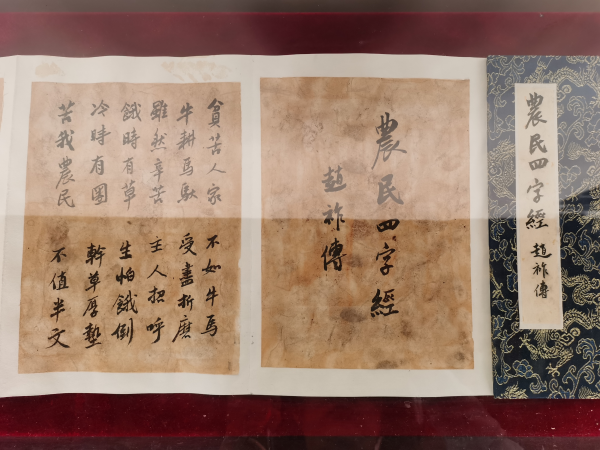 農民四字經 趙祚傳
農民四字經
趙祚傳
貧苦人家 不如牛馬
牛耕馬馱 受盡折磨
雖然辛苦 主人招呼
餓時有草 生怕餓倒
冷時有圈 幹草厚墊
苦我農民 不值半文